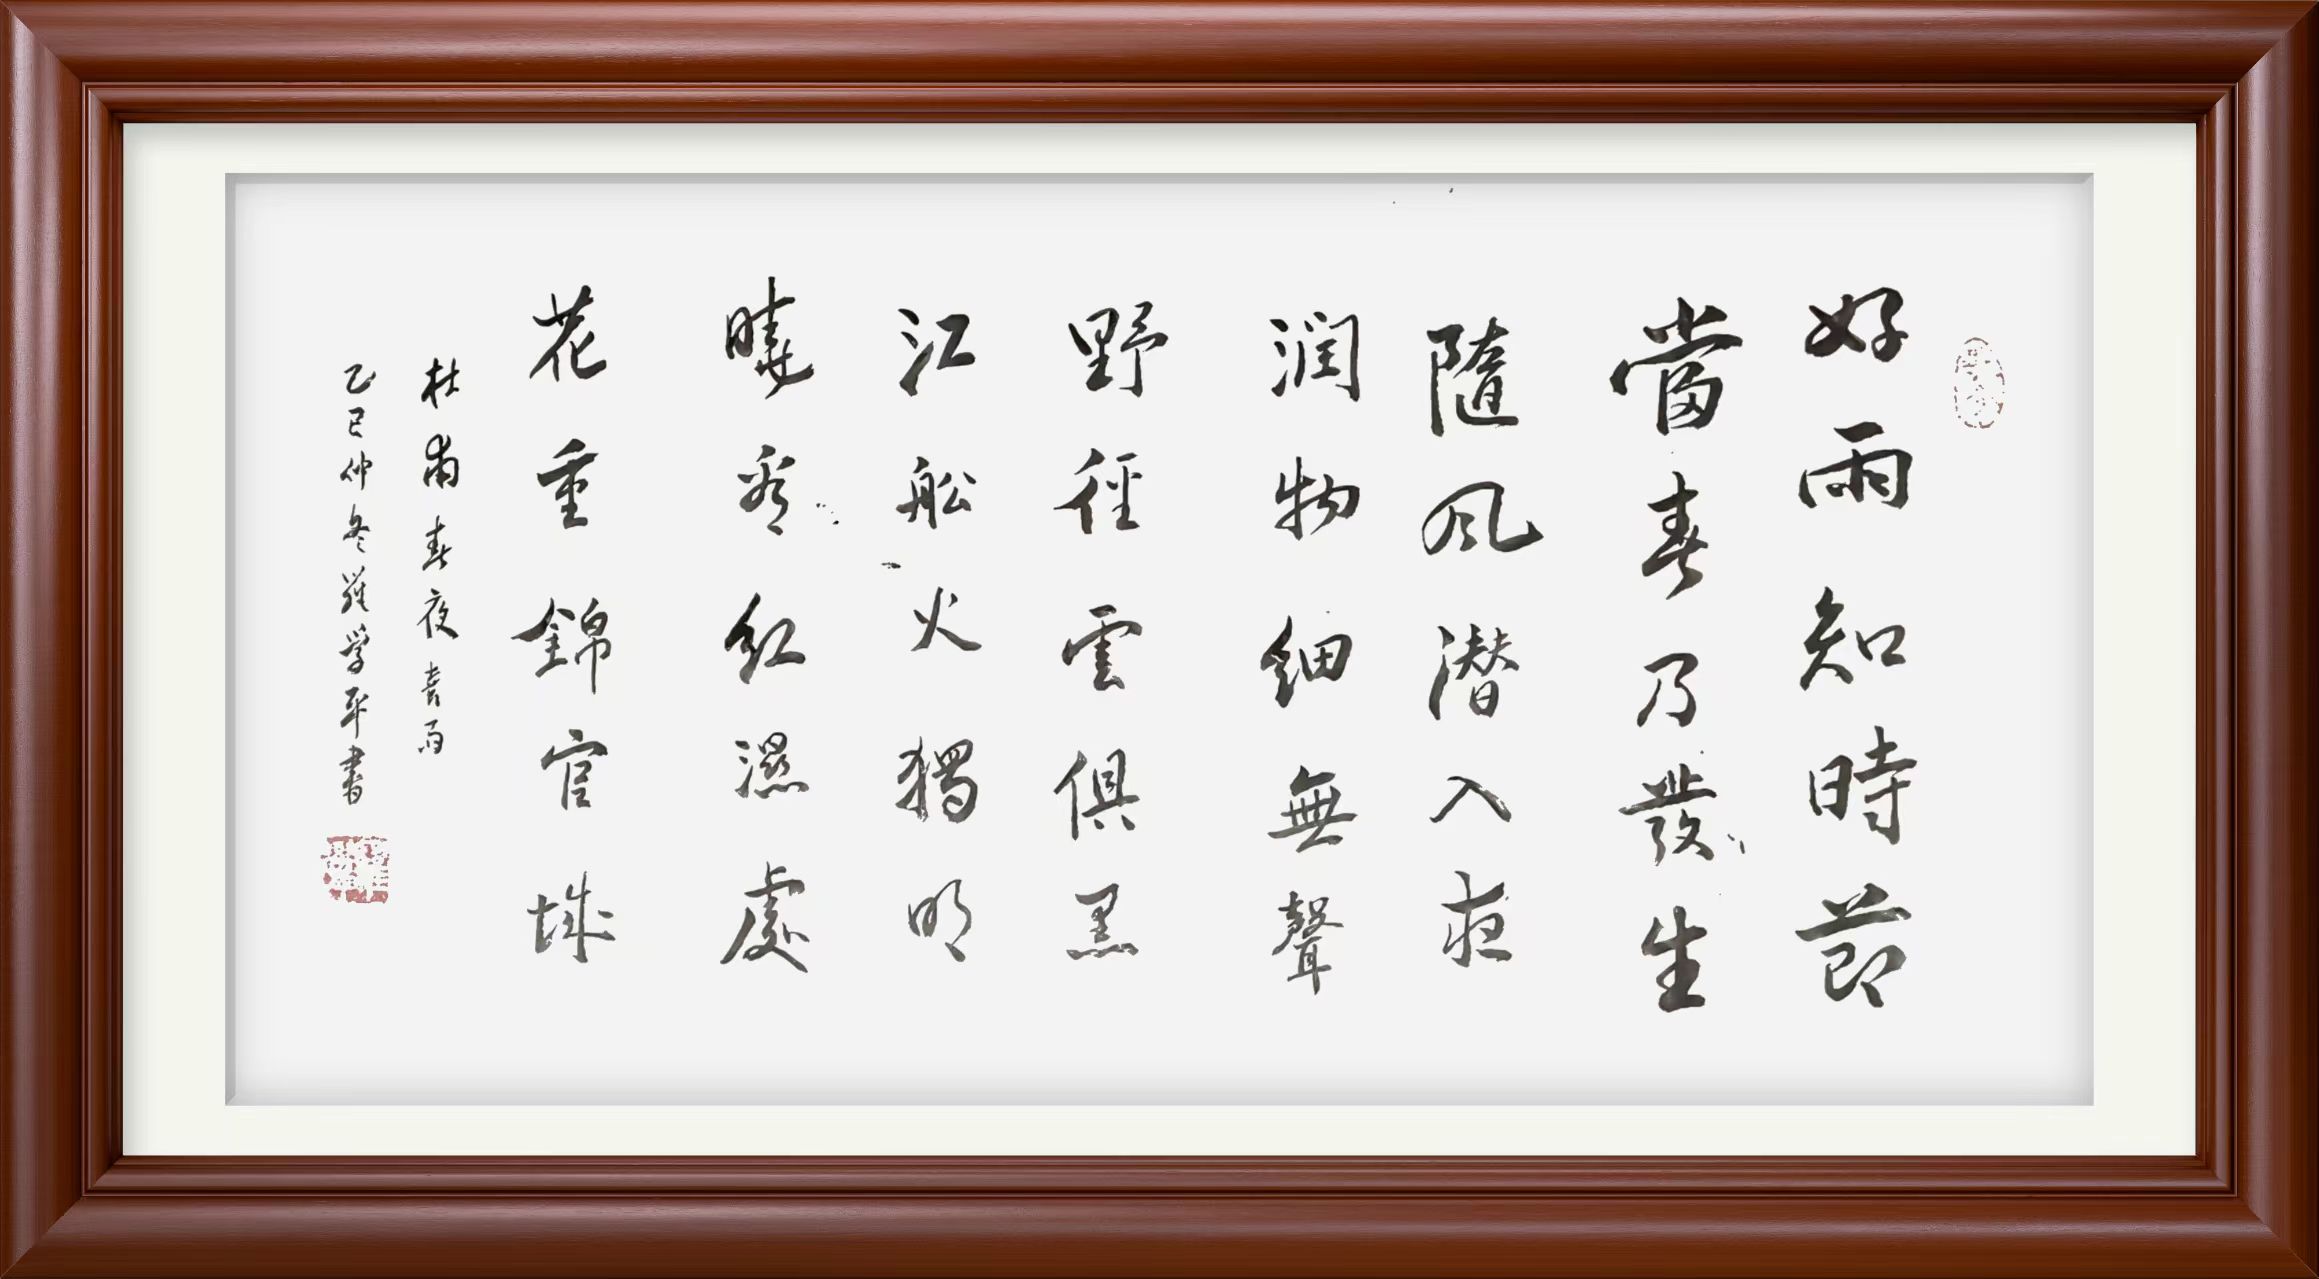 好雨知時節
當春乃發生
隨風潜入夜
润物細無聲
野徑雲俱黑
江船火獨明
曉看紅濕處
花重錦官城
杜甫春夜喜雨
乙巳仲冬羅学平書